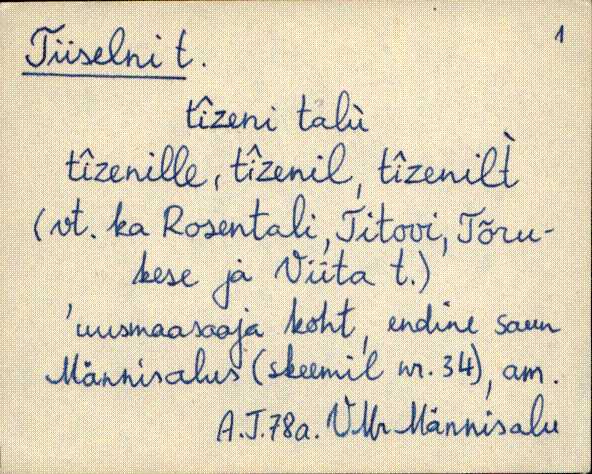 Tiiselni t.
1
tîzeni talù
tîzenille, tîzenil, tîzenilT̀
(vt. ka Rosentali, Titovi, Tõru-
kese ja Viita t.)
'uusmaasaaja koht, endine saun
Männisalus (skeemil nr. 34), am.
A.J.78a. VMr Männisalu